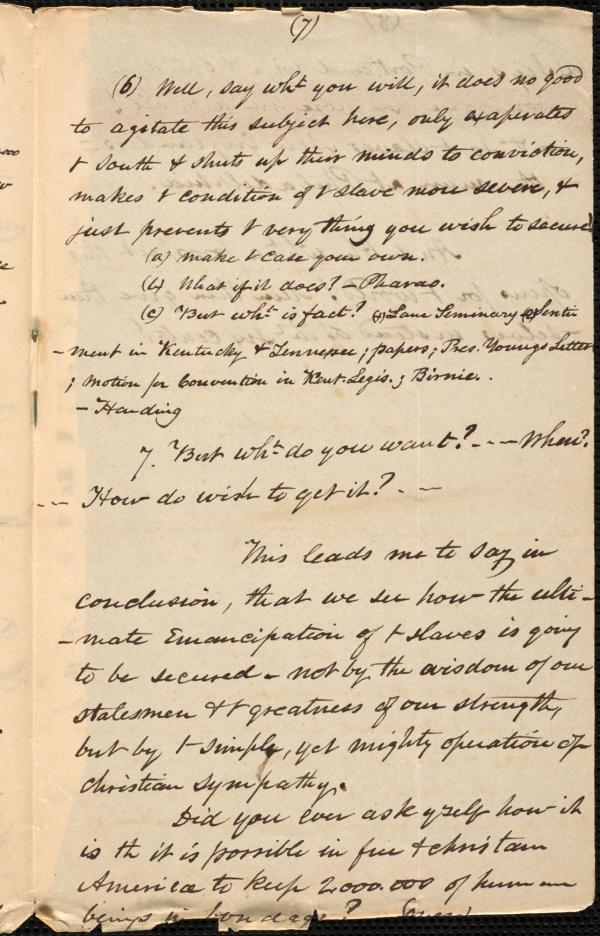 (7)
(6) Well, say wht you will, it does no good
to agitate this subject here, only exaperates
t South & shuts up their minds to conviction,
makes t condition of t slave more severe, &
just prevents t very thing you wish to secure.
(a) make t case your own.
(b) What if it does? – Pharao.
(c) But wht is fact? (1) Lane Seminary (2) Senti
- ment in Kentucky & Tennessee; papers; Pres. Youngs Letter
; motion for Convention in Kent. Legis.; Birnie.
- Harding
7. But wht do you want? - - - When?
- - How do wish to get it? - -
This leads me to say in
conclusion, that we see how the ulti-
-mate Emancipation of t slaves is going
to be secured - not by the wisdom of our
statesmen & t greatness of our strength,
but by t simple, yet mighty operation of
christian sympathy.
Did you ever ask yself how it
is th it is possible in free & christian
America to keep 2,000.000 of human
beings in bondage?